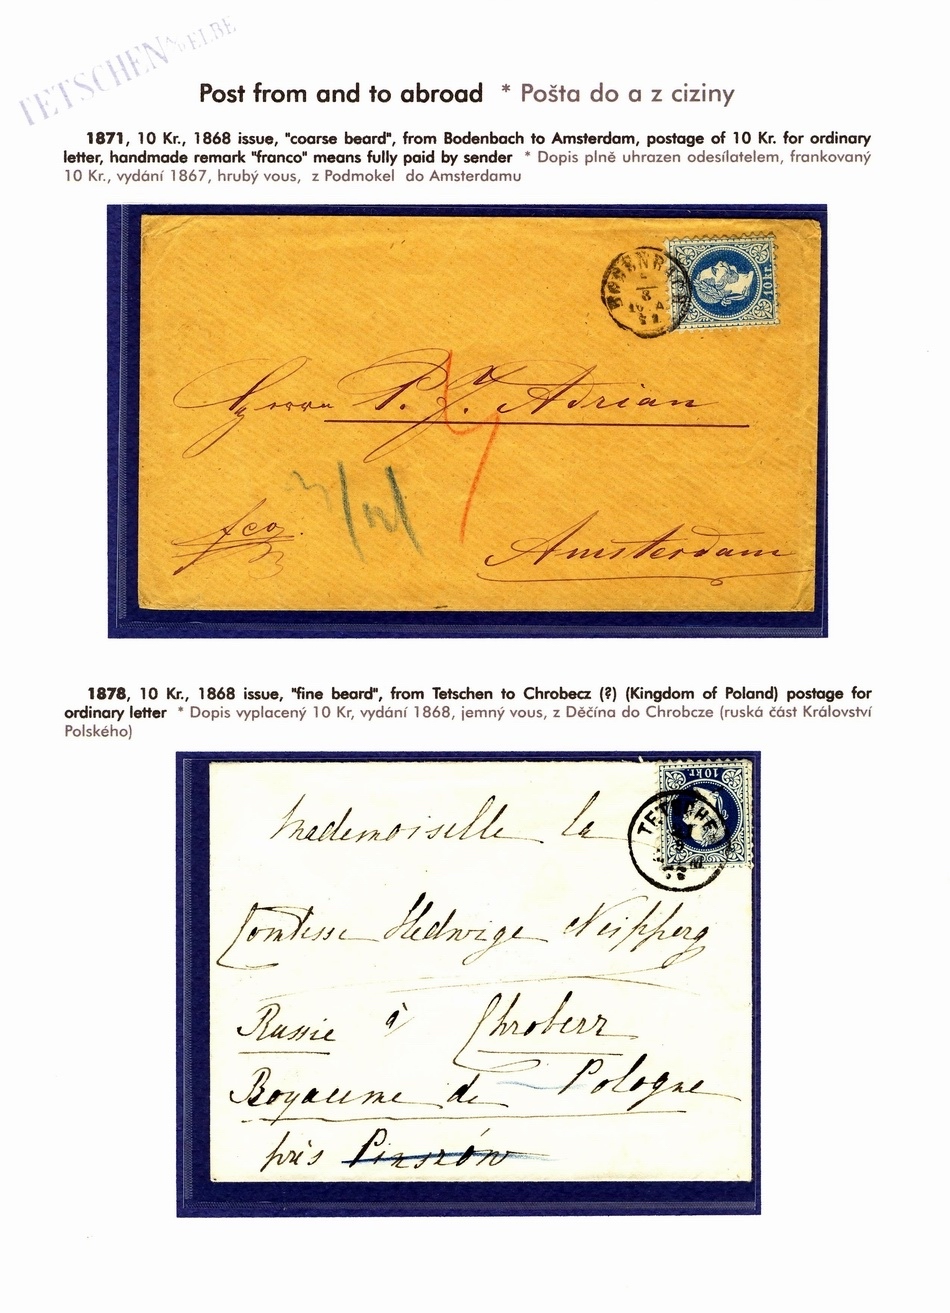 TETSCHEN A/D ELBE
Post from and to abroad * Pošta do a z ciziny
1871, 10 Kr., 1868 issue, "coarse beard", from Bodenbach to Amsterdam, postage of 10 Kr. for ordinary
letter, handmade remark "franco" means fully paid by sender * Dopis plně uhrazen odesílatelem, frankovaný
10 Kr., vydání 1867, hrubý vous, z Podmokel do Amsterdamu
BODENBACH
8
10 kr.
Herrn P. J. Adrian
fco
Amsterdam
1878, 10 Kr., 1868 issue, "fine beard", from Tetschen to Chrobecz (?) (Kingdom of Poland) postage for
ordinary letter * Dopis vyplacený 10 Kr, vydání 1868, jemný vous, z Děčína do Chrobcze (ruská část Království
Polského)
10 kr.
TETSCHEN
Mademoiselle la
Comtesse Hedwige Neipperg
Russie à Chroberz
Royaume de Pologne
près Pinszów